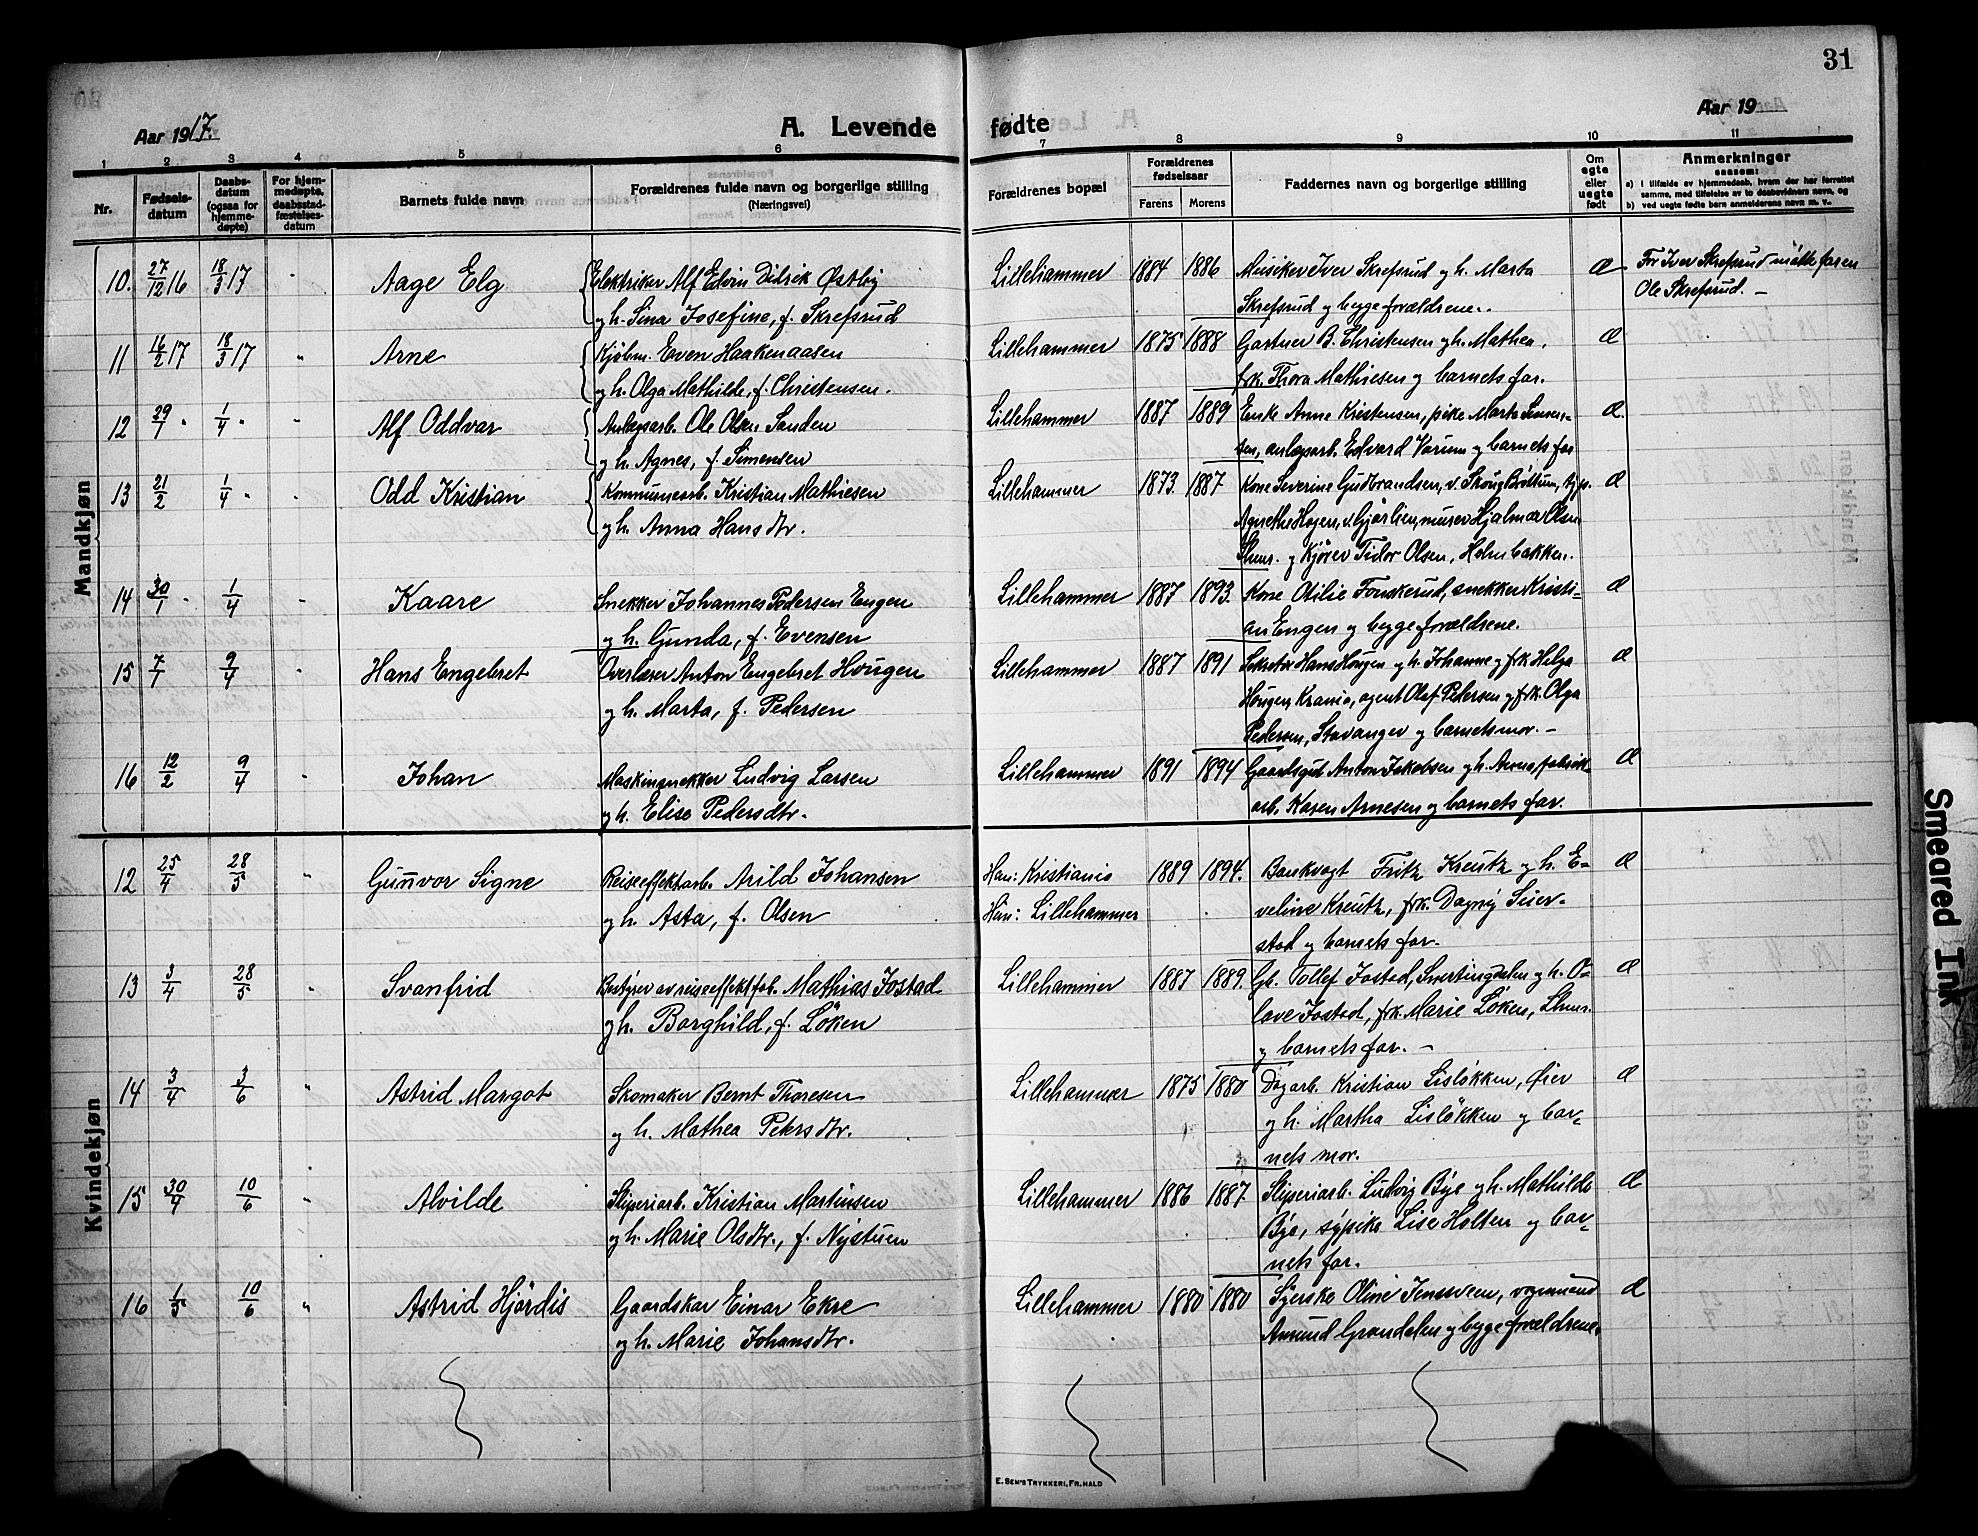 31
Aar 1917.
A. Levende fødte
Aar 19
1 2 3 4 5 6 7 8 9 10 11
Nr.
Fødsels-
datum
Daabs-
datum
(ogsaa for
hjemme-
døpte)
For hjem-
medøpte,
daabsstad-
fæstelses-
datum
Barnets fulde navn
Forældrenes fulde navn og borgerlige stilling
(Næringsvei)
Forældrenes bopæl
Forældrenes
fødselsaar
Farens Morens
Faddernes navn og borgerlige stilling
Om
egte
eller
uegte
født
Anmerkninger
saasom:
a) I tilfælde av hjemmedaab, hvem der har forrettet
samme, med tilføielse av to daabsvidners navn, og
b) ved uegte fødte barn anmelderens navn m. v..
Mandkjøn
10. 27/12 16 18/3 17 Aage Elg
Elektriker Alf Edvin Didrik Østby
og h. Sina Josefine, f. Skrefsrud
Lillehammer 1884 1886
Musiker Iver Skrefsrud og h. Marta
Skrefsrud og begge forældrene..
Æ
For Iver Skrefsrud møtte faren
Ole Skrefsrud. -
11 16/2 17 18/3 17 " Arne
Kjøbm. Even Haakenaasen
og h. Olga Mathilde, f. Christensen.
Lillehammer 1875 1888
Gartner B. Christensen og h. Mathea,
frk. Thora Mathiesen og barnets far.
Æ
12 29/1 " 1/4 " " Alf Oddvar
Anlægsarb. Ole Olsen Sanden
og h. Agnes, f. Simensen
Lillehammer 1887 1889
Enke Anne Kristensen, pike Marta Simen-
sen, anlægsarb. Edvard Varum og barnets far
Æ.
13 21/2 1/4 " " Odd Kristian
Kommunearb. Kristian Mathiesen
og h. Anna Hansdtr.
Lillehammer 1873. 1887
Kone Severine Gudbrandsen, v. Skoug Brøttum,
Agnethe Hagen, v. Gjørlien, murer Hjalmar Olsen
Lhmr. og kjører Tidor Olsen, Holmbakken.
Æ
14 30/1 " 1/4 " Kaare
Snekker Johannes Pedersen Engen
og h. Gunda, f. Evensen
Lillehammer 1887 1893.
Kone Otilie Fonskerud, snekker Kristi-
an Engen og begge forældrene.
Æ
15 7/1 9/4 " Hans Engebret
Overlærer Anton Engebret Hougen
og h. Marta, f. Pedersen
Lillehammer 1887 1891
Hans Hougen og h. Johanne og frk Helga
Hougen Krania, agent Olaf Pedersen og frk. Olga
Pedersen, Stavanger og barnets mor. -
Æ
16 12/2 9/4 " Johan
Maskinsnekker Ludvig Larsen
og h. Elise Pedersdtr.
Lillehammer 1891 1894
Gaardsgut Anton Jakobsen og h. Anna, fabrik-
arb. Karen Arnesen og barnets far.
Æ
Kvindekjøn
12 25/4 28/5 " Gunvor Signe
Reiseeffektarb. Arild Johansen
og h. Asta, f. Olsen
Han: Kristiania
Hun: Lillehammer
1889 1894.
Bankvogt Fritz Kreutz og h. E-
veline Kreutz, frk. Dagny Seier-
stad og barnets far.
Æ
13 3/4 28/5 " Svanfrid
Bestyrer av reiseeffektfab. Mathias Jostad
og h. Borghild, f. Löken
Lillehammer 1887 1889.
Gb. Tollef Jostad, Snertingdalen og h. O-
lave Jostad, frk. Marie Löken, Lhmr.
og barnets far. -
Æ
14 3/4 3/6 " Astrid Margot
Skomaker Bernt Thoresen
og h. Mathea Petersdtr.
Lillehammer 1875 1880
Dagarb. Kristian Lislökken, Øier
og h. Martha Lislökken og bar-
nets mor.
Æ
15 30/4 10/6 " Alvilde
Sliperiarb. Kristian Martinsen
og h. Marie Olsdtr., f. Nystuen
Lillehammer 1886 1887
Sliperiarb. Ludvig Bye og h. Mathilde
Bye, sypike Lise Holten og bar-
nets far.
Æ
16 1/5 10/6 " Astrid Hjördis
Gaardskar Einar Ekre
og h. Marie Johansdtr.
Lillehammer 1880 1880
Syerske Oline Jenssveen, vognmand
Amund Grandalen og begge forældrene.
Æ
E. SEM'S TRYKKERI, FR.HALD
Smeared Ink